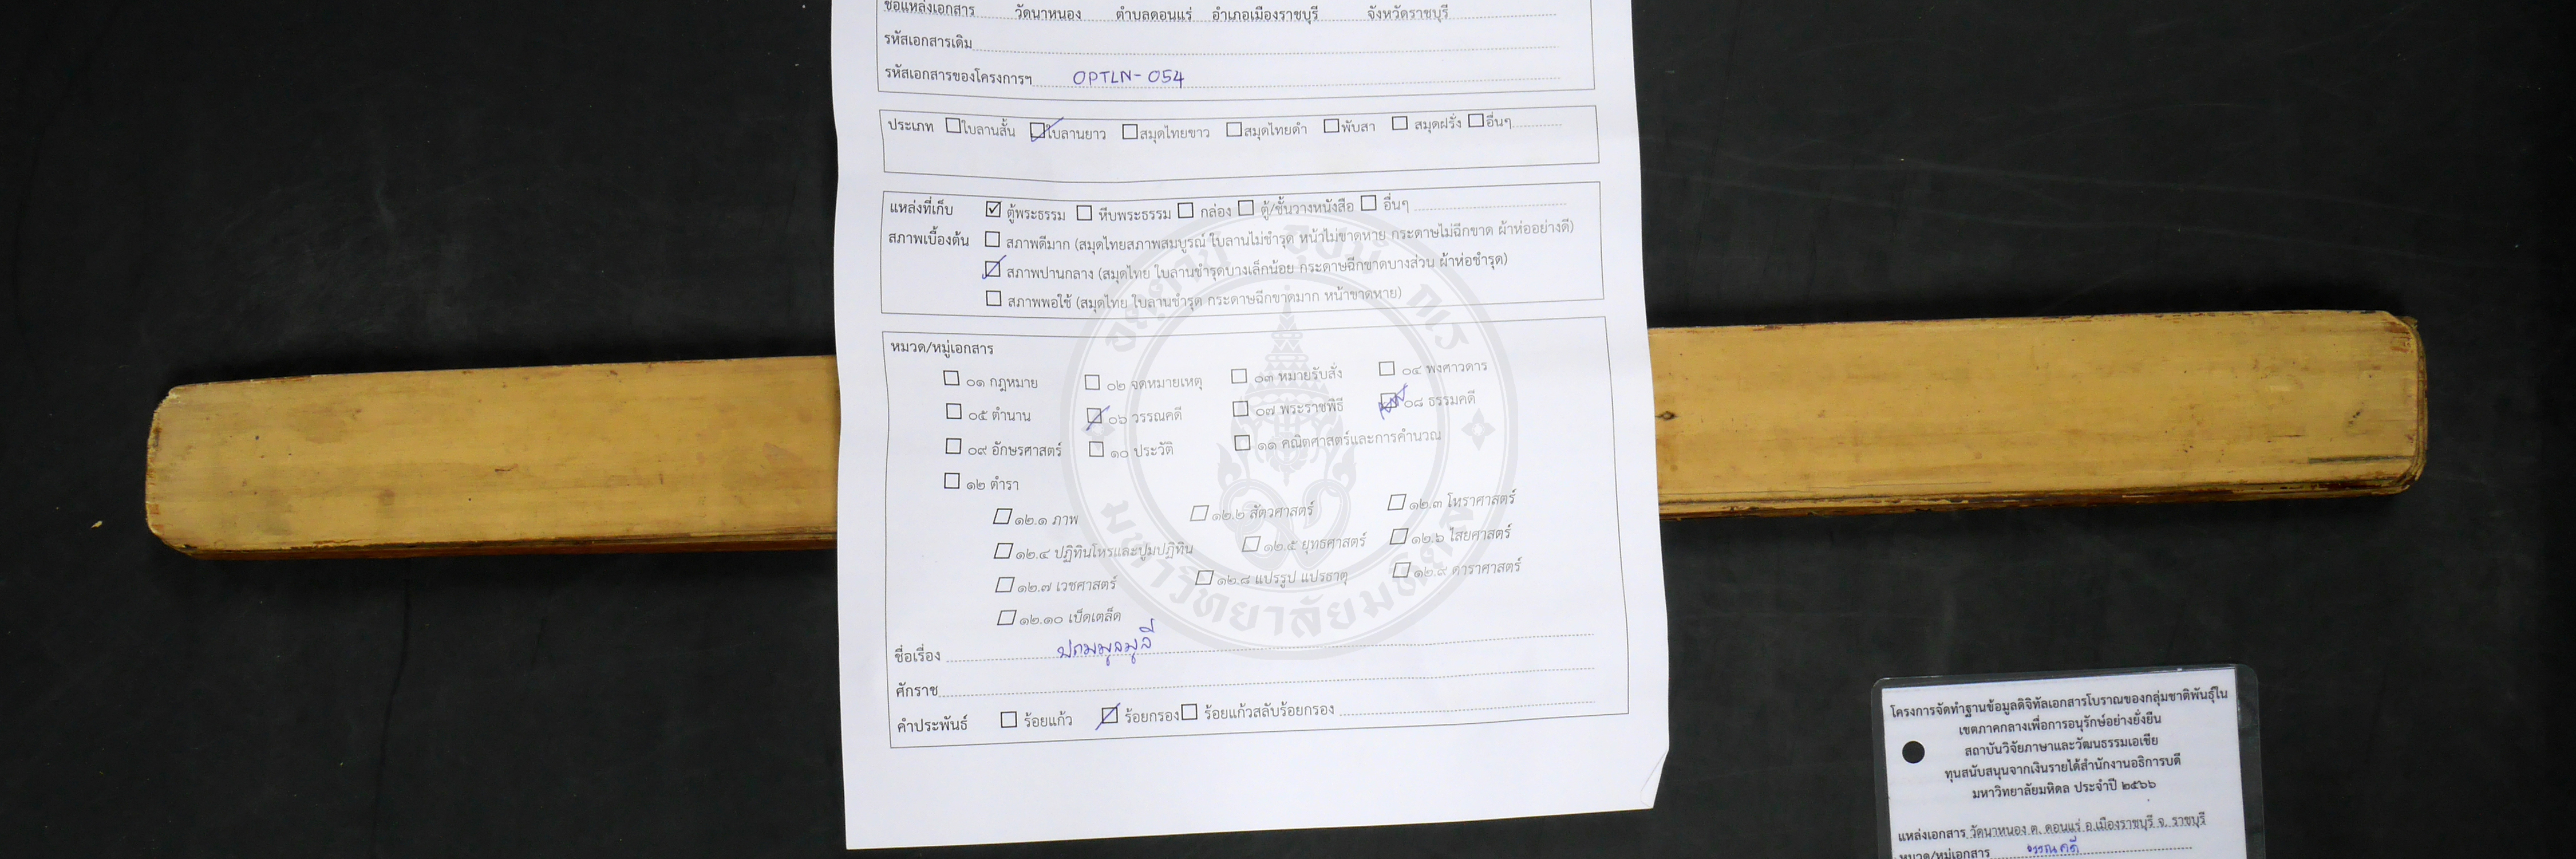 ชื่อแหล่งเอกสาร วัดนาหนอง ตำบลดอนแร่ อำเภอเมืองราชบุรี จังหวัดราชบุรี
รหัสเอกสารเดิม
รหัสเอกสารของโครงการฯ OPTLN-054
ประเภท ใบลานสั้น ใบลานยาว สมุดไทยขาว สมุดไทยดำ พับสา สมุดฝรั่ง อื่นๆ
แหล่งที่เก็บ ตู้พระธรรม หีบพระธรรม กล่อง ตู้/ชั้นวางหนังสือ อื่นๆ
สภาพเบื้องต้น สภาพดีมาก (สมุดไทยสภาพสมบูรณ์ ใบลานไม่ชำรุด หน้าไม่ขาดหาย กระดาษไม่ฉีกขาด ผ้าห่ออย่างดี)
สภาพปานกลาง (สมุดไทย ใบลานชำรุดบางเล็กน้อย กระดาษฉีกขาดบางส่วน ผ้าห่อชำรุด)
สภาพพอใช้ (สมุดไทย ใบลานชำรุด กระดาษฉีกขาดมาก หน้าขาดหาย)
หมวด/หมู่เอกสาร
๐๑ กฎหมาย ๐๒ จดหมายเหตุ ๐๓ หมายรับสั่ง ๐๔ พงศาวดาร
๐๕ ตำนาน ๐๖ วรรณคดี ๐๗ พระราชพิธี ๐๘ ธรรมคดี
๐๙ อักษรศาสตร์ ๑๐ ประวัติ ๑๑ คณิตศาสตร์และการคำนวณ
๑๒ ตำรา
๑๒.๑ ภาพ ๑๒.๒ สัตวศาสตร์ ๑๒.๓ โหราศาสตร์
๑๒.๔ ปฏิทินโหรและปูมปฏิทิน ๑๒.๕ ยุทธศาสตร์ ๑๒.๖ ไสยศาสตร์
๑๒.๗ เวชศาสตร์ ๑๒.๘ แปรรูป แปรธาตุ ๑๒.๙ ดาราศาสตร์
๑๒.๑๐ เบ็ดเตล็ด
ชื่อเรื่อง ปถมมูลมูลี
ศักราช
คำประพันธ์ ร้อยแก้ว ร้อยกรอง ร้อยแก้วสลับร้อยกรอง
มหาวิทยาลัยมหิดล
โครงการจัดทำฐานข้อมูลดิจิทัลเอกสารโบราณของกลุ่มชาติพันธุ์ใน
เขตภาคกลางเพื่อการอนุรักษ์อย่างยั่งยืน
สถาบันวิจัยภาษาและวัฒนธรรมเอเชีย
ทุนสนับสนุนจากเงินรายได้สำนักงานอธิการบดี
มหาวิทยาลัยมหิดล ประจำปี ๒๕๖๖
แหล่งเอกสาร วัดนาหนอง ต. ดอนแร่ อ.เมืองราชบุรี จ. ราชบุรี
หมวด/หมู่เอกสาร วรรณคดี